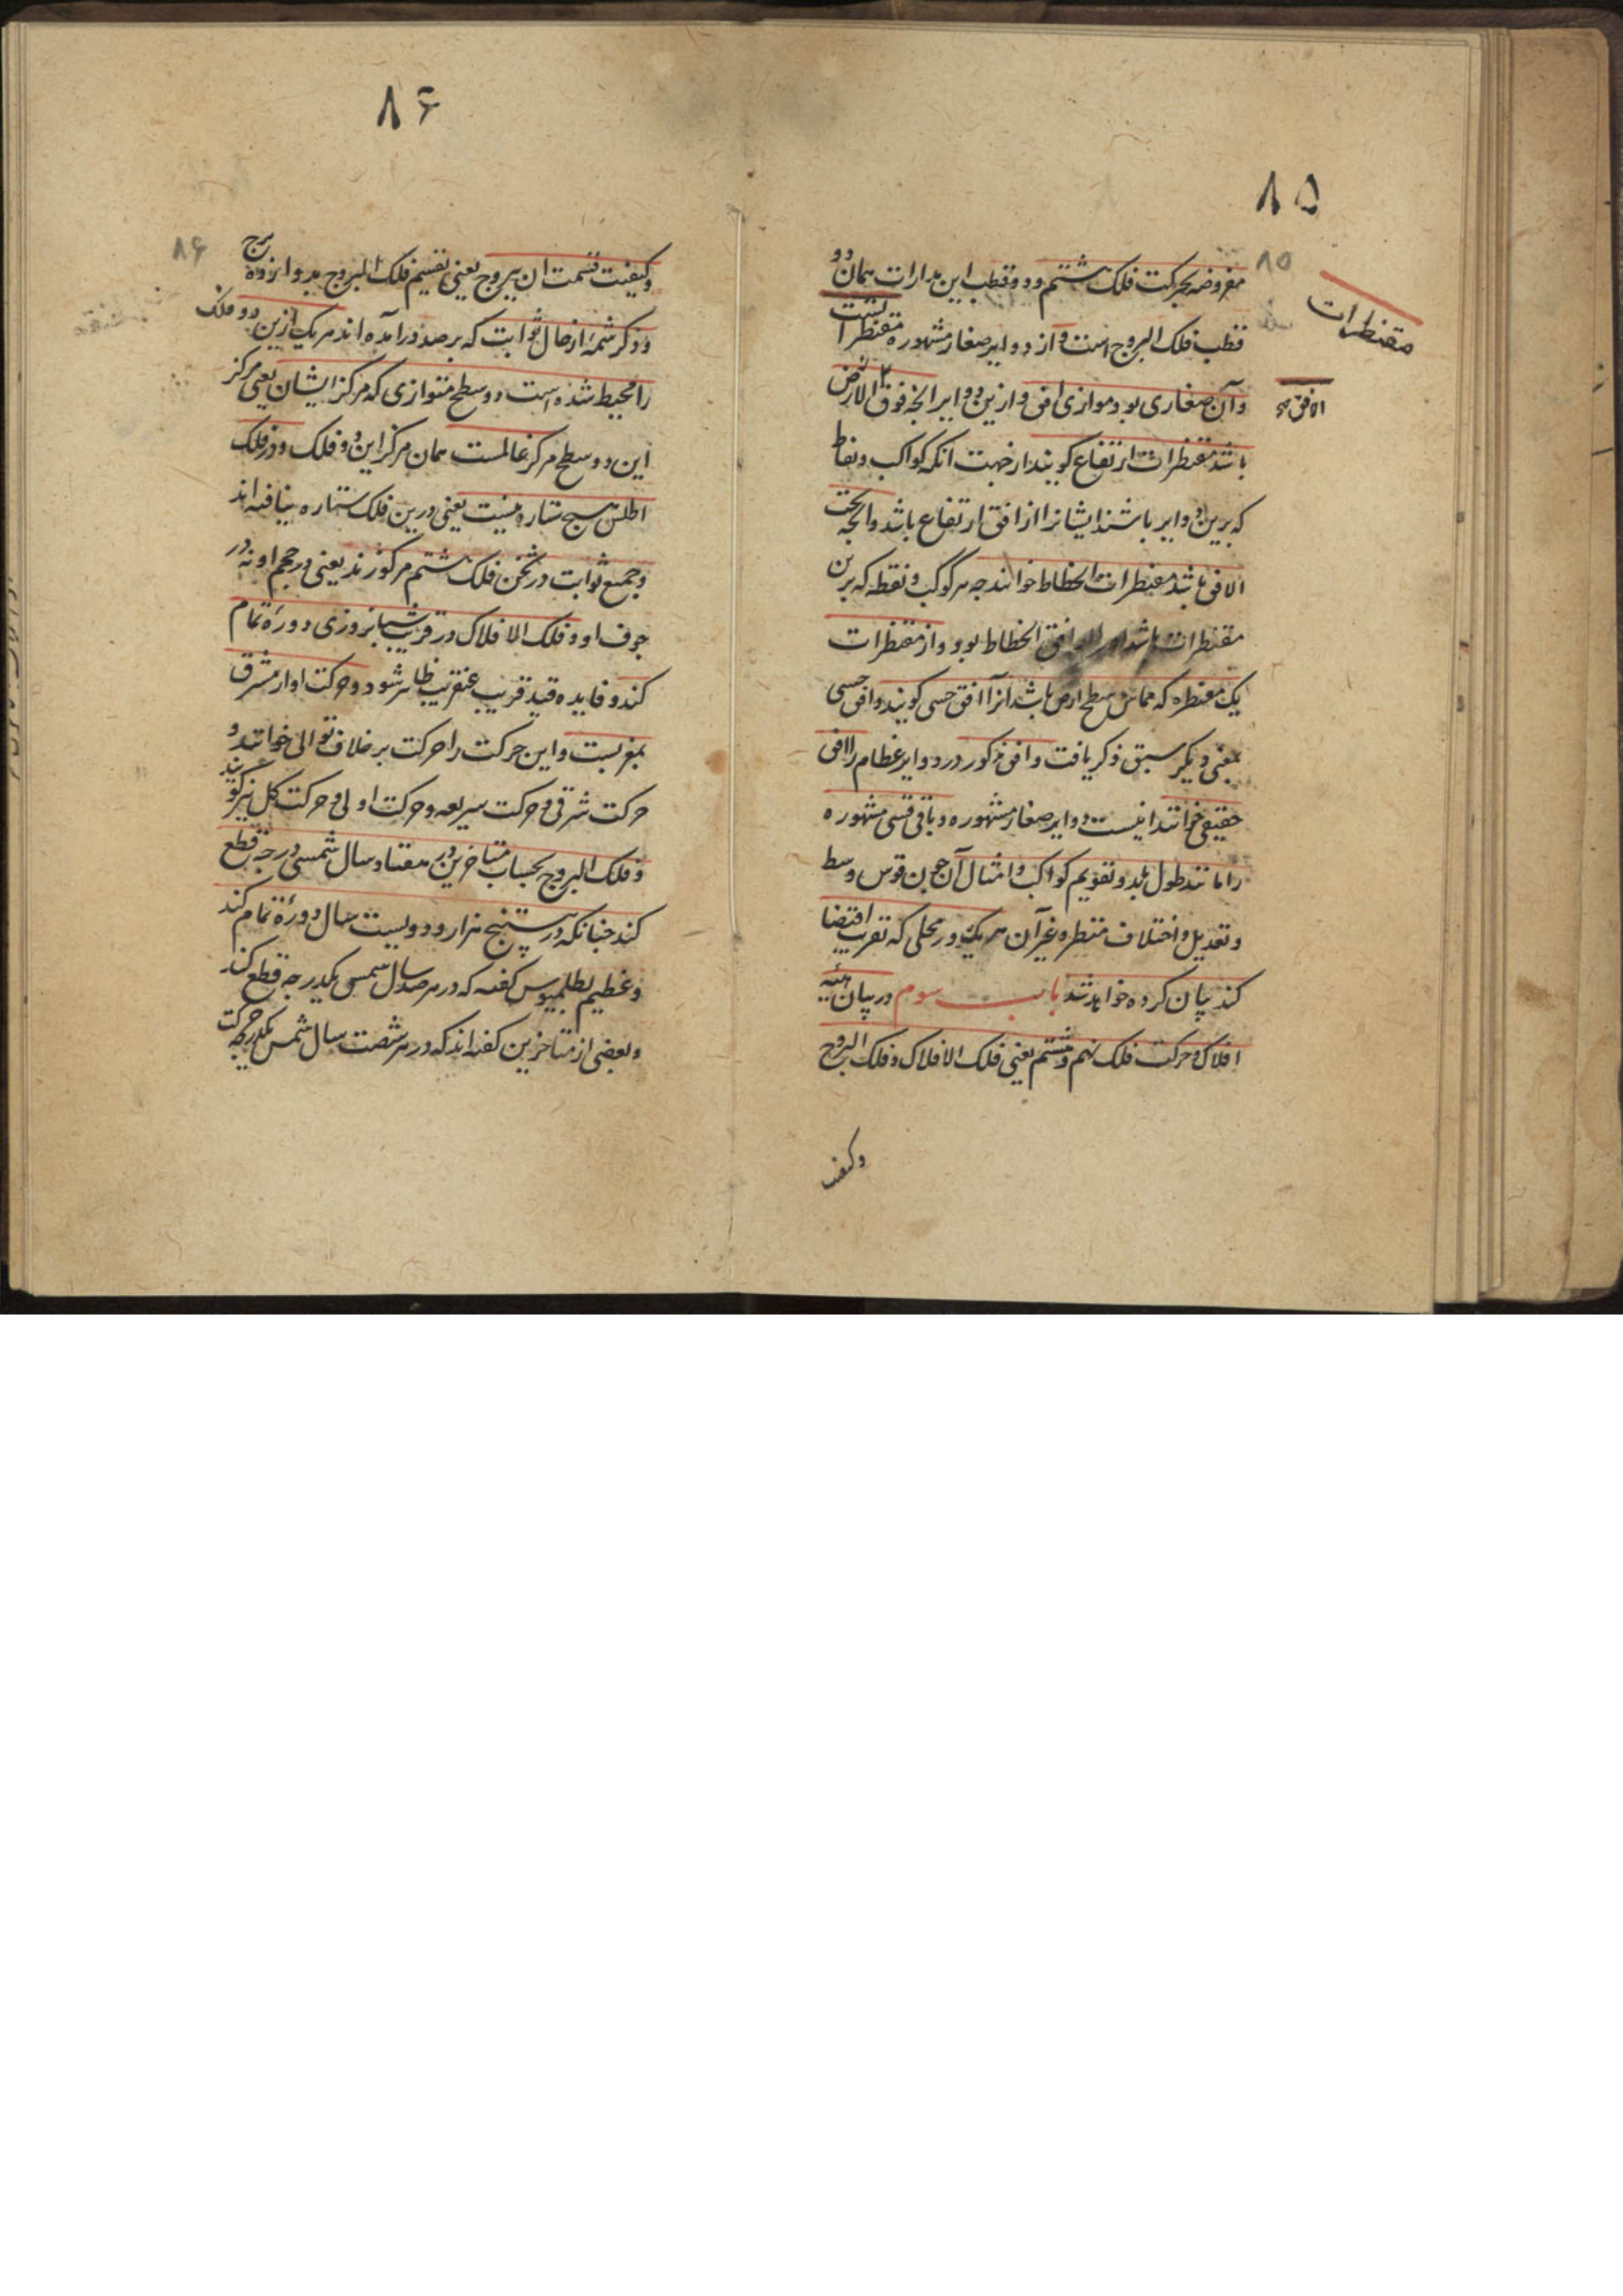 ۸۵
۸۵
مقنطرات
مفروضه بحرکت فلک هشتم و دو قطب این مدارات همان دو
قطب فلک البروج است و از دوایر صغار مشهوره مقنطرا تست
و آن صغاری بود موازی افق و از این دوایر آنچه فوق الارض
الافق صح
باشد مقنطرات ارتفاع گویند از جهت آنکه کواکب و نقاط
که برین دوایر باشند ایشانرا از افق ارتفاع باشد و آنچه تحت
الافق باشد مقنطرات انحطاط خوانند چه هر کوکب و نقطه که برین
مقنطرات باشد او را از افق انحطاط بود و از مقنطرات
یک مقنطره که مماس سطح ارض باشد آنرا افق حسی گویند و افق حسی
بمعنی دیگر سبق ذکر یافت و افق مذکور در دوایر عظام را افق
حقیقی خوانند اینست دوایر صغار مشهوره و باقی قسی مشهوره
را مانند طول بلد و تقویم کواکب و امثال آن چون قوس وسط
و تعدیل و اختلاف منظر و غیر آن هر یک در محلی که تقریب اقتضا
کند بیان کرده خواهد شد باب سوم در بیان هیئة
افلاک و حرکت فلک نهم و هشتم یعنی فلک الافلاک و فلک البروج
وکیفیت
۸۶
۸۶
وکیفیت قسمت آن ببروج یعنی تقسیم فلک البروج بدوازده برج
و ذکر شمهٔ از حال ثوابت که برصد درآمده اند هر یک ازین دو فلک
را محیط شده است دو سطح متوازی که مرکز ایشان یعنی مرکز
این دو سطح مرکز عالمست همان مرکز این دو فلک و در فلک
اطلس هیچ ستاره نیست یعنی درین فلک ستاره نیافته اند
و جمیع ثوابت در ثخن فلک هشتم مرکوزند یعنی در حجم او نه در
جوف او و فلک الافلاک در قریب شبانروزی دوره تمام
کند و فایده قید قریب عنقریب ظاهر شود و حرکت او از مشرق
بمغربست و این حرکت را حرکت بر خلاف توالی خوانند و
حرکت شرقی و حرکت سریعه و حرکت اولی و حرکت کل نیز گویند
و فلک البروج بحساب متاخرین در هفتاد سال شمسی درجه قطع
کند چنانکه در بیست و پنج هزار و دویست سال دورهٔ تمام کند
و عظیم بطلمیوس گفته که در هر صد سال شمسی یکدرجه قطع کند
و بعضی از متاخرین گفته اند که در هر شصت سال شمسی یکدرجه حرکت